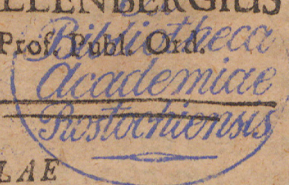 LLENBERGIUS
Prof. Publ. Ord.
Bibliotheca
Academiae
Rostochiensis
LAE